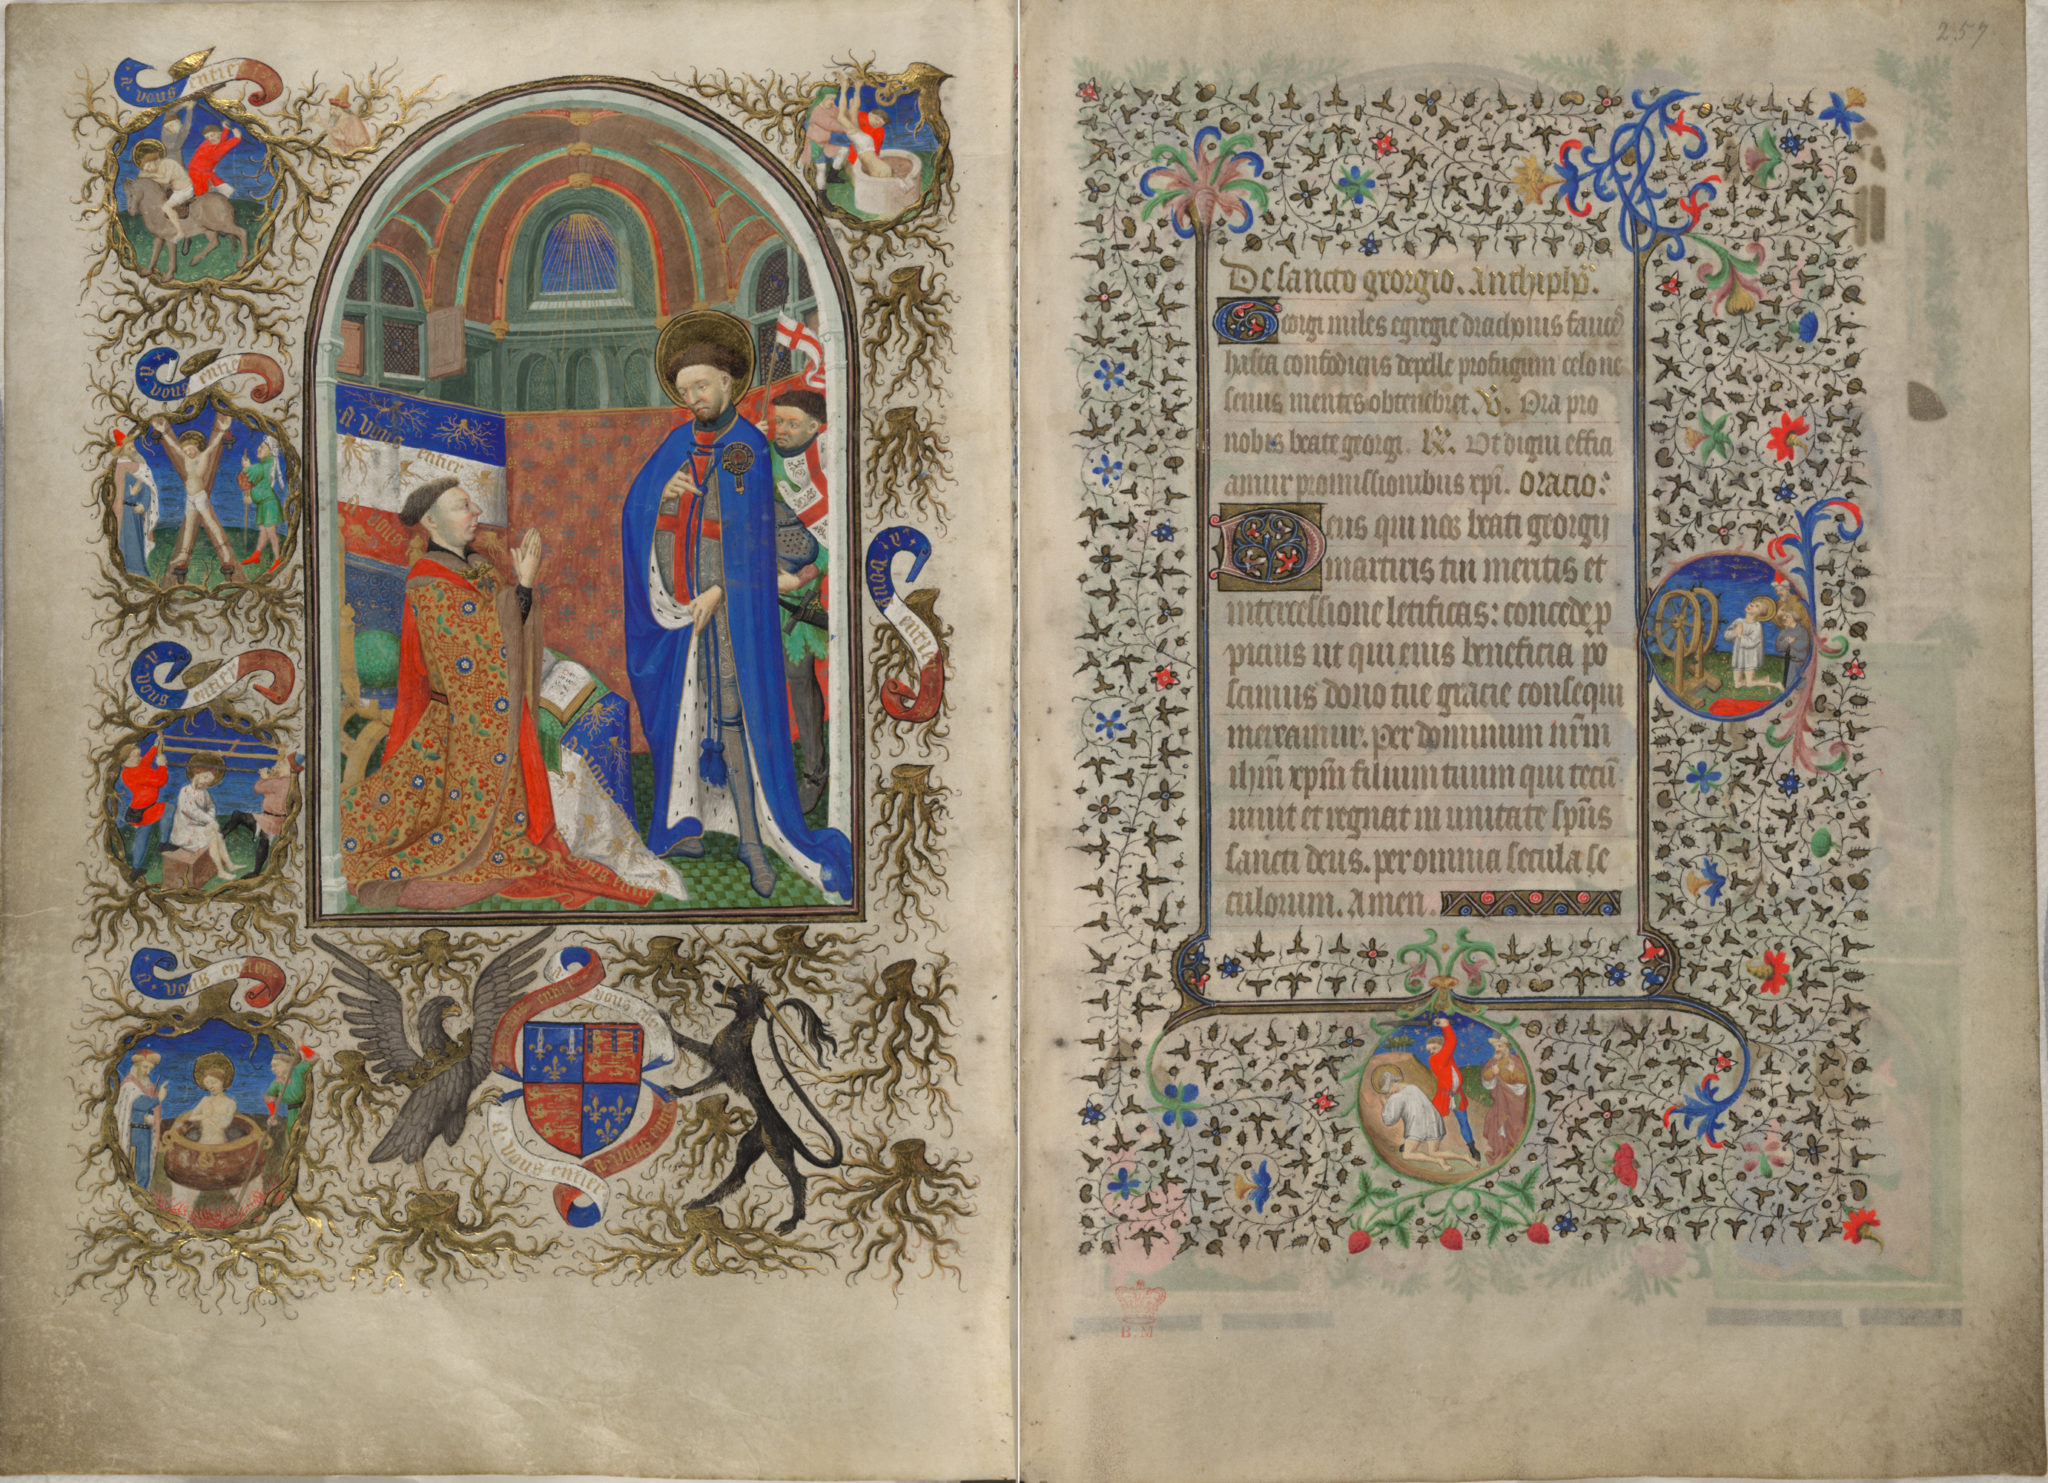 a vous entier
a vous entier
a vous entier
a vous entier
a vous entier
a vous
entier
a vous
a vous
vous entier
a vous entier
a vous entier
257
De sancto georgio. Antiph̄.
Georgi miles egregie drachonis fauces
hasta confodiens depelle profugum celo ne
seuus mentes obtenebret. V̄. Ora pro
nobis beate georgi. R̄. Vt digni effici
amur promissionibus xpī. oratio:
Deus qui nos beati georgij
martiris tui meritis et
intercessione letificas: concede ꝓ
picius ut qui eius beneficia po
scimus dono tue gracie consequi
mereamur. per dominum nr̄m
ihm̄ xpm̄ filium tuum qui tecū
uiuit et regnat in unitate spūs
sancti deus. per omnia secula se
culorum. Amen.
B.M